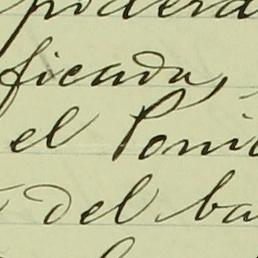 poderá
ficada,
el Poni
del ba